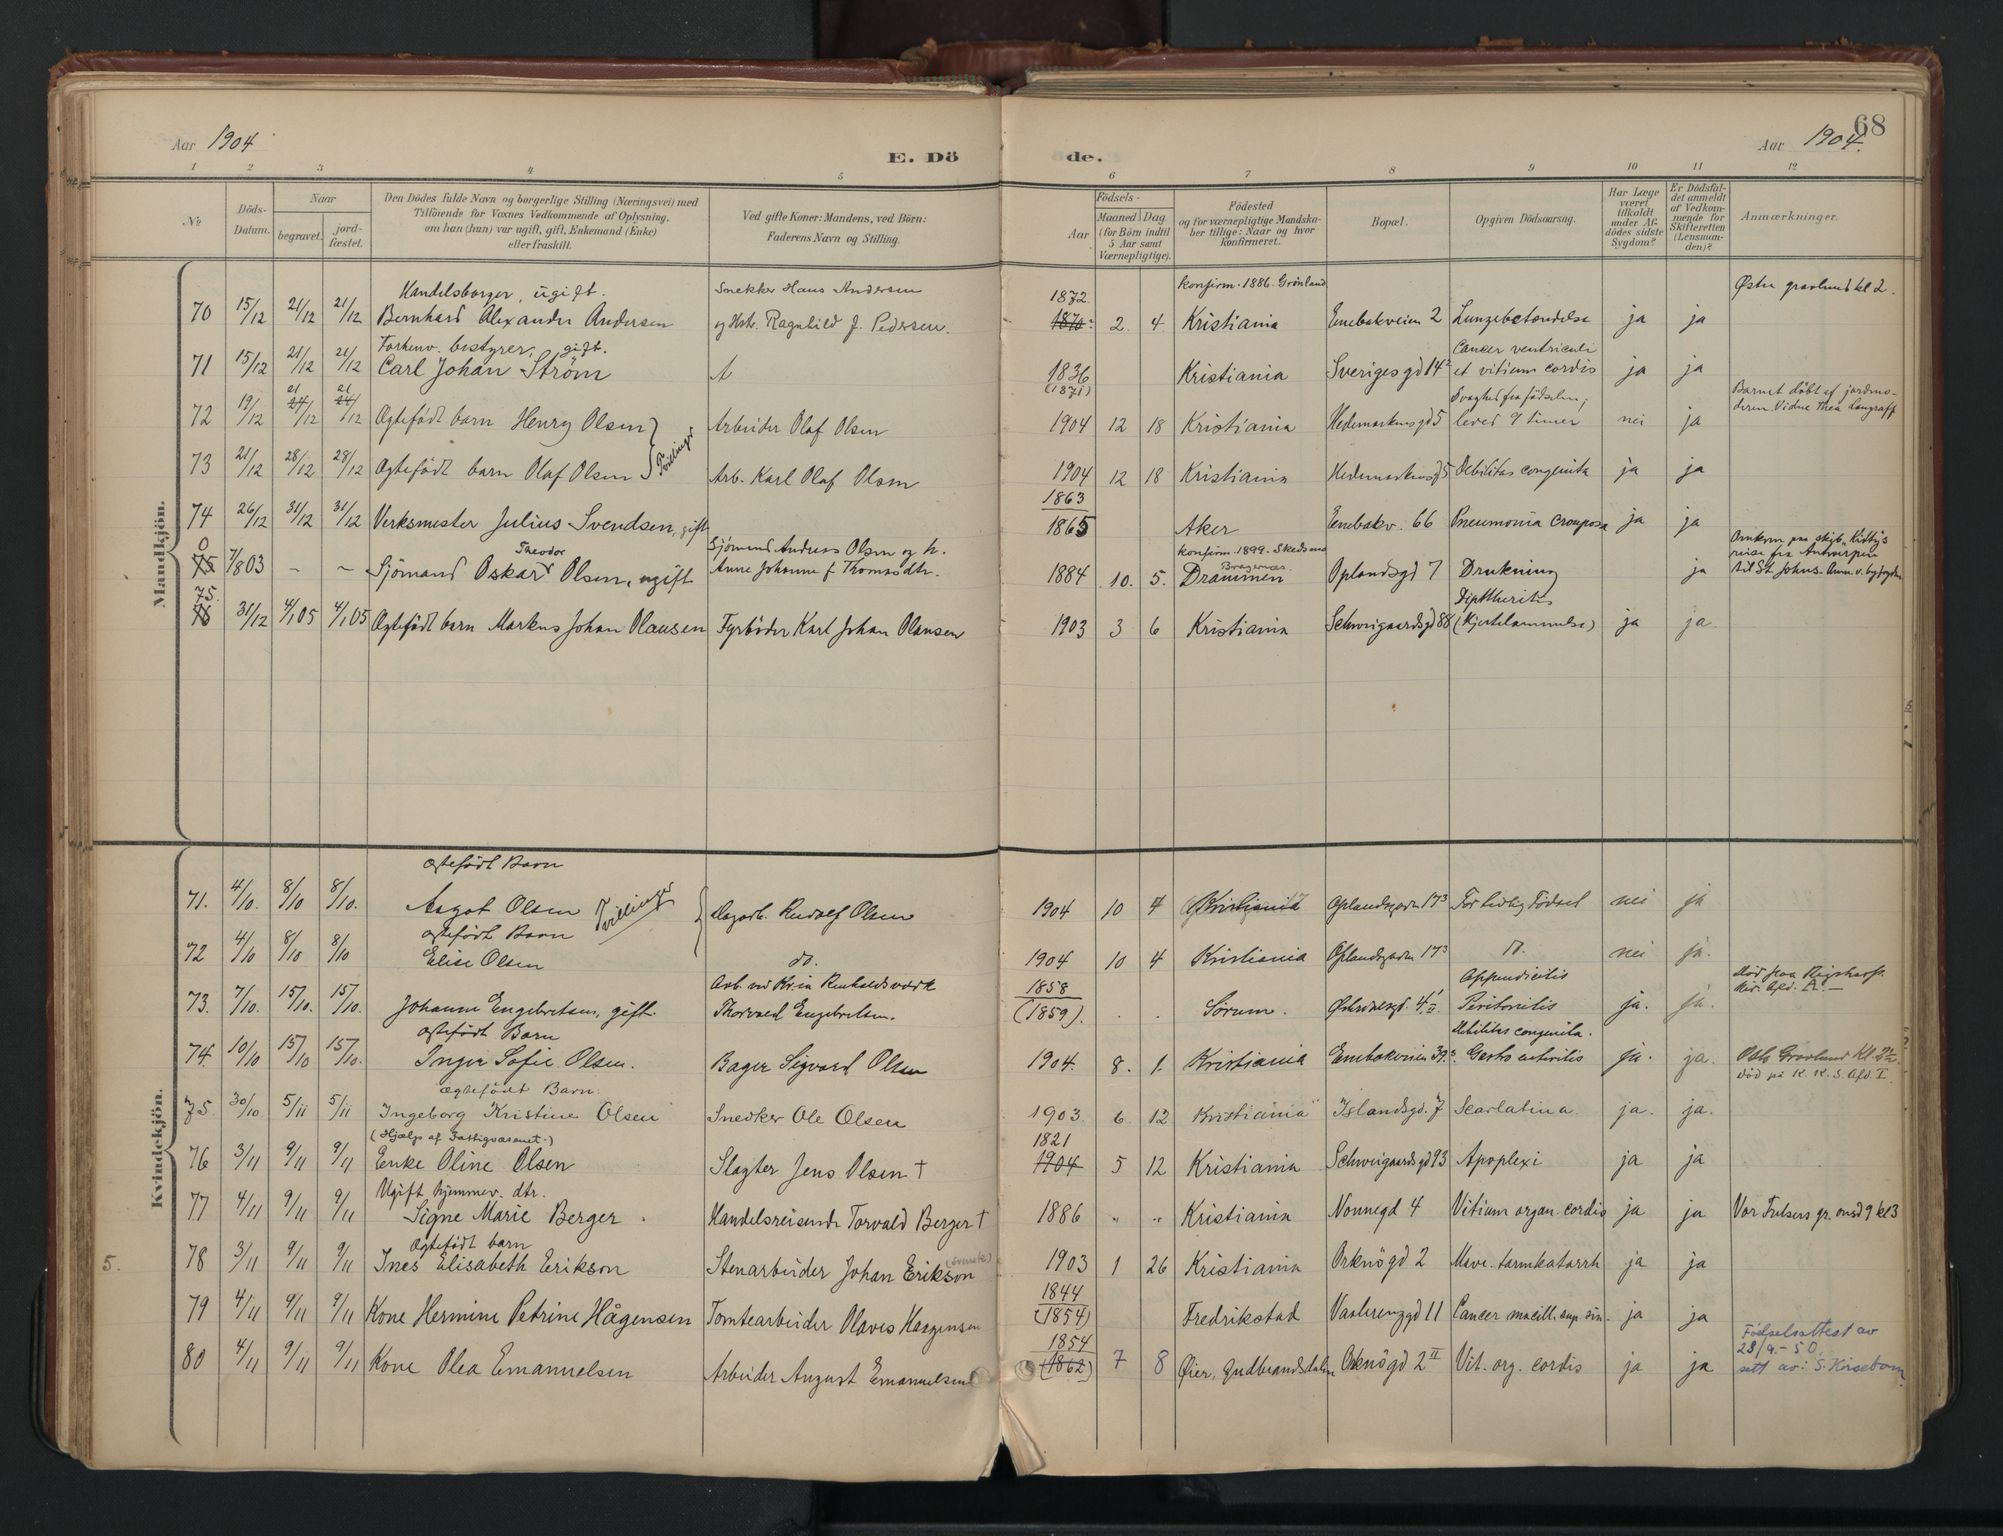 68
Aar 1904
E. Dö
de.
Aar 1904.
1 2 3 4 5 6 7 8 9 10 11 12
№
Döds-
Datum.
Naar
begravet.
jord-
fæstet.
Den Dödes fulde Navn og borgerlige Stilling (Næringsvei) med
Tilföiende for Voxnes Vedkommende af Oplysning,
om han (hun) var ugift, gift, Enkemand (Enke)
eller fraskilt.
Ved gifte Koner: Mandens, ved Börn:
Faderens Navn og Stilling.
Födsels-
Aar
Maaned Dag
(for Börn indtil
5 Aar samt
Værnepligtige).
Födested
og for værnepligtige Mandska-
ber tillige: Naar og hvor
konfirmeret.
Bopæl.
Opgiven Dödsaarsag.
Har Læge
været
tilkaldt
under Af-
dödes sidste
Sygdom?
Er Dödsfal-
det anmeldt
af Vedkom-
mende for
Skifteretten
(Lensman-
den)?
Anmærkninger.
Mandkjön.
Handelsborger, ugift. Snekker Hans Andersen 1872 konfirm. 1886. Grönland Østre gravlund kl 2.
70 15/12 21/12 21/12 Bernhard Alexander Andersen og Hst. Ragnhild J. Pedersen. 1870 2. 4. Kristiania Enebakveien 2 Lungebetændelse ja ja
Forhenv. bestyrer, gift. Cancer ventriculi
71 15/12 21/12 21/12 Carl Johan Ström 1836 Kristiania Sverigesgd 14² et vitium cordis ja ja
(1871) Svaghed fra födselen; Barnet döbt af jordmo-
72 19/12 21/12 21/12 Ogtefödt barn Henry Olsen Arbeider Olaf Olsen 1904 12 18 Kristiania Hedemarkensgd 5 leved 9 timer nei ja deren. Vidne Thea Langraff
73 21/12 28/12 28/12 Ogtefödt barn Olaf Olsen Tvillinger Arb. Karl Olaf Olsen 1904 12 18 Kristiania Hedemarkensgd 5 Debilitas congenita ja ja
1863
74 26/12 31/12 31/12 Verksmester Julius Svendsen, gift 1865 Aker Enebakv. 66 Pneumonia crouposa ja ja
0 Theodor Sjömand Andreas Olsen og h. konfirm. 1899. Skedsmo Omkom paa skib "Kitty's
75 7/8 03 – ~ Sjömand Oskar Olsen, ugift Anne Johanne f Thomasdtr. 1884 10. 5. Bragernæs. Drammen Oplandsgd 7 Drukning ja reise fra Antwerpen
til St. Johns.
75. Diphtheritis
76 31/12 4/1 05 4/1 05 Ogtefödt barn Markus Johan Olausen Fyrböder Karl Johan Olausen 1903 3 6 Kristiania Schweigaardsgd 88 (Hjertelammelse) ja ja.
Kvindekjön.
Ogtefödt Barn
71. 4/10. 8/10 8/10. Aagot Olsen Tvillinger Dagarb. Rudolf Olsen 1904 10 4 Kristiania Oplandsgaden 17³ For tidlig Födsel nei ja
Ogtefödt Barn
72 4/10 8/10 8/10 Elise Olsen do. 1904 10 4 Kristiania Oplandsgaden 17³ D. nei ja.
Arb. ved Kr.ia Renholdsværk 1858 Appendicitis Död paa Rigshosp.
73. 7/10. 15/10. 15/10. Johanne Engebretsen, gift. Thorvald Engebretsen. (1859). Sörum. 4.II Peritonitis ja. ja. kir. Afd. A. —
Ogtefödt Barn Debilitas congenita.
74. 10/10 15/10 15/10. Inger Sofie Olsen. Bager Sigvard Olsen 1904. 8. 1. Kristiania Enebakveien 39. Gastro enteritis ja. ja. Oslo Gravlund Kl.
Död på K. K. S. Afd. I.
Ogtefödt Barn.
75. 30/10. 5/11 5/11 Ingeborg Kristine Olsen Snedker Ole Olsen 1903. 6 12 Kristiania Islandsgd. 7 Scarlatina. ja. ja.
(Hjælp af Fattigvæsenet.) 1821
76 3/11 9/11 9/11 Enke Oline Olsen Slagter Jens Olsen † 1904 5 12 Kristiania Schweigaardsgd 93 Apoplexi ja ja
Ugift hjemmev. dtr.
77 4/11 9/11 9/11 Signe Marie Berger Handelsreisende Torvald Berger † 1886 " " Kristiania Nonnegd 4 Vitium organ. cordis ja ja Vor Frelsers gr. onsd 9 kl 3
Ogtefödt barn (svensk)
5. 78 3/11 9/11 9/11 Ines Elisabeth Erikson Stenarbeider Johan Erikson 1903 1 26 Kristiania Orknögd 2 Mave-tarmkatarrh ja ja
1844
79 4/11 9/11 9/11 Kone Hermine Petrine Hågensen Tomtearbeider Olaves Haagensen (1854) Fredrikstad Vaalerenggd 11 Cancer maxill. sup. sin. ja ja
1854 Födselsattest av
80 4/11 9/11 9/11 Kone Olea Emanuelsen Arbeider August Emanuelsen (1862) 7 8 Øier, Gudbrandsdalen Orknögd 2 II Vit. org. cordis ja ja 28/9.-50.
sett av: S. Kirsebom